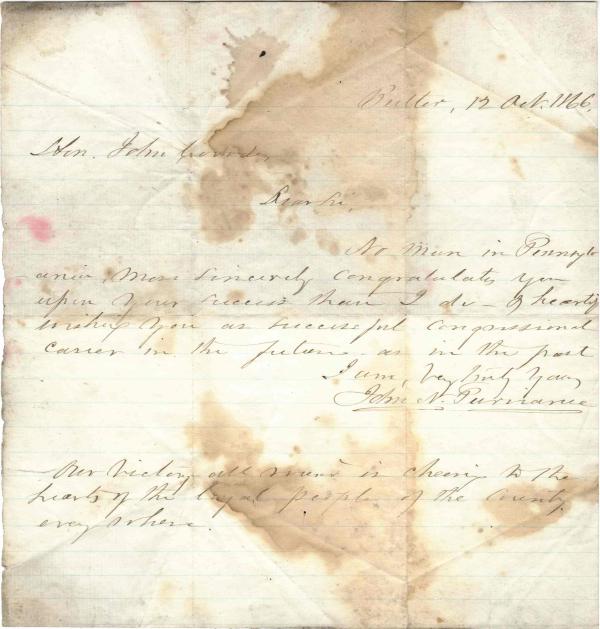 Butler, 12 Oct. 1866.
Hon. John Covode,
Dear Sir,
No man in Pennsylv
ania, more sincerely congratulates you
upon your success than I do – & heartily
wishes you as successful congressional
career in the future as in the past
I am, Very truly Yours
John N. Purviance
Our victory all round is cheering to the
hearts of the loyal people of the County
every where.